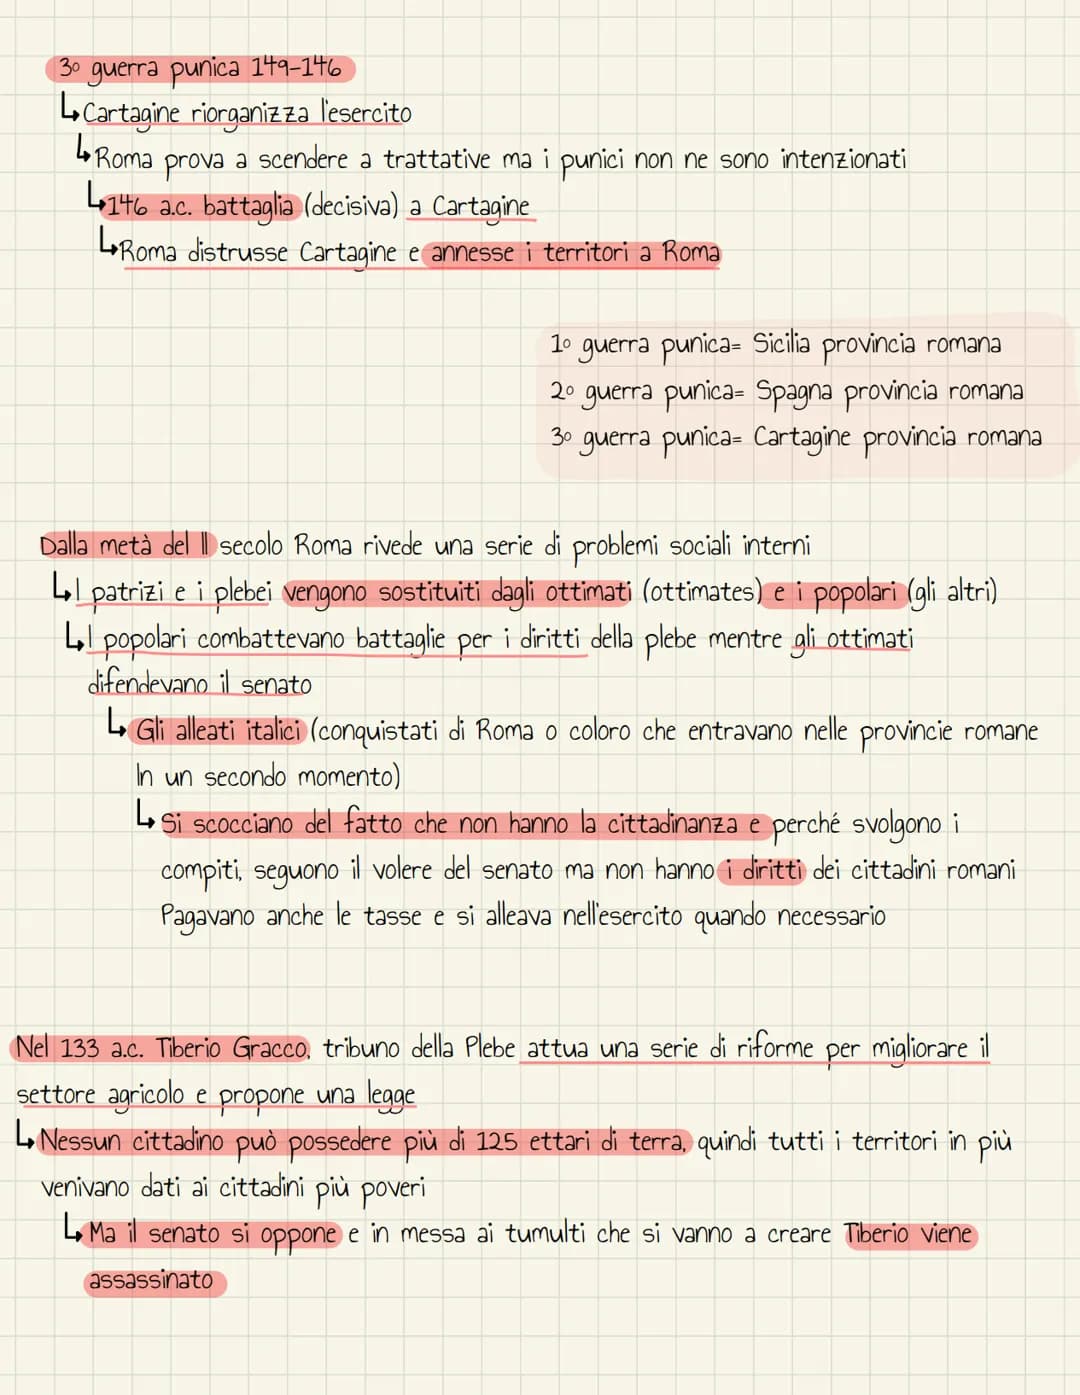 3º guerra punica 149-146
↳Cartagine riorganizza l'esercito
↳Roma prova a scendere a trattative ma i punici non ne sono intenzionati
↳146 a.c. battaglia (decisiva) a Cartagine
↳Roma distrusse Cartagine e annesse i territori a Roma
1º guerra punica= Sicilia provincia romana
2º guerra punica= Spagna provincia romana
3º guerra punica= Cartagine provincia romana
Dalla metà del II secolo Roma rivede una serie di problemi sociali interni
↳I patrizi e i plebei vengono sostituiti dagli ottimati (ottimates) e i popolari (gli altri)
↳I popolari combattevano battaglie per i diritti della plebe mentre gli ottimati
difendevano il senato
↳Gli alleati italici (conquistati di Roma o coloro che entravano nelle provincie romane
In un secondo momento)
↳Si scocciano del fatto che non hanno la cittadinanza e perché svolgono i
compiti, seguono il volere del senato ma non hanno i diritti dei cittadini romani
Pagavano anche le tasse e si alleava nell'esercito quando necessario
Nel 133 a.c. Tiberio Gracco, tribuno della Plebe attua una serie di riforme per migliorare il
settore agricolo e propone una legge
↳Nessun cittadino può possedere più di 125 ettari di terra, quindi tutti i territori in più
venivano dati ai cittadini più poveri
↳Ma il senato si oppone e in messa ai tumulti che si vanno a creare Tiberio viene
assassinato